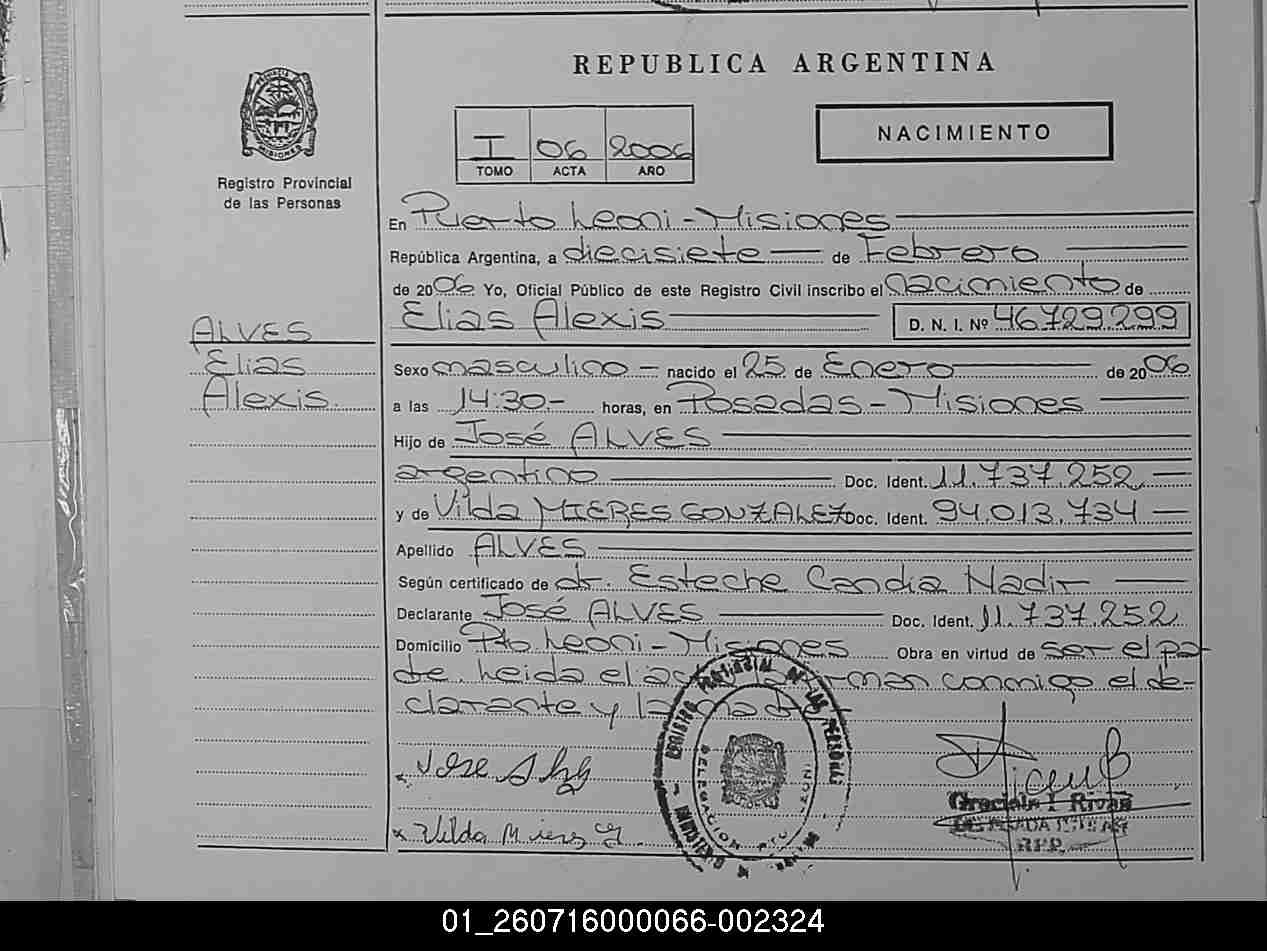 REPUBLICA ARGENTINA
PROVINCIA DE
MISIONES
Registro Provincial
de las Personas
I 06 2006
TOMO ACTA AÑO
NACIMIENTO
En Puerto Leoni - Misiones
República Argentina, a diecisiete de Febrero
de 2006 Yo, Oficial Público de este Registro Civil inscribo el nacimiento de
Elias Alexis D. N. I. Nº 46.729.299
ALVES
Elias
Alexis.
Sexo masculino - nacido el 25 de Enero de 2006
a las 14:30.- horas, en Posadas - Misiones
Hijo de José ALVES
argentino Doc. Ident. 11.737.252
y de Vilda MIERES GONZALEZ Doc. Ident. 94.013.734
Apellido ALVES
Según certificado de dr. Esteche Candia Nadir
Declarante José ALVES Doc. Ident. 11.737.252
Domicilio Pto Leoni - Misiones Obra en virtud de ser el pa-
dre. Leida el acta la firman conmigo el de-
clarante y la madre
REGISTRO PROVINCIAL DE LAS PERSONAS
DELEGACION PTO. LEONI
- MISIONES -
Jose
x Vilda Mierez G.
Graciela I. Rivas
RPP
01_260716000066-002324